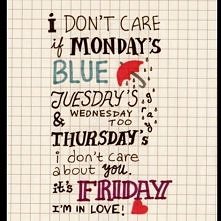 i DON'T CARE
if MONDAY'S
BLUE
TUESDAY'S
gray
& WEDNESDAY
TOO
THURSDAY'S
i don't care
about you.
it's FRIDAY!
I'M IN LOVE!